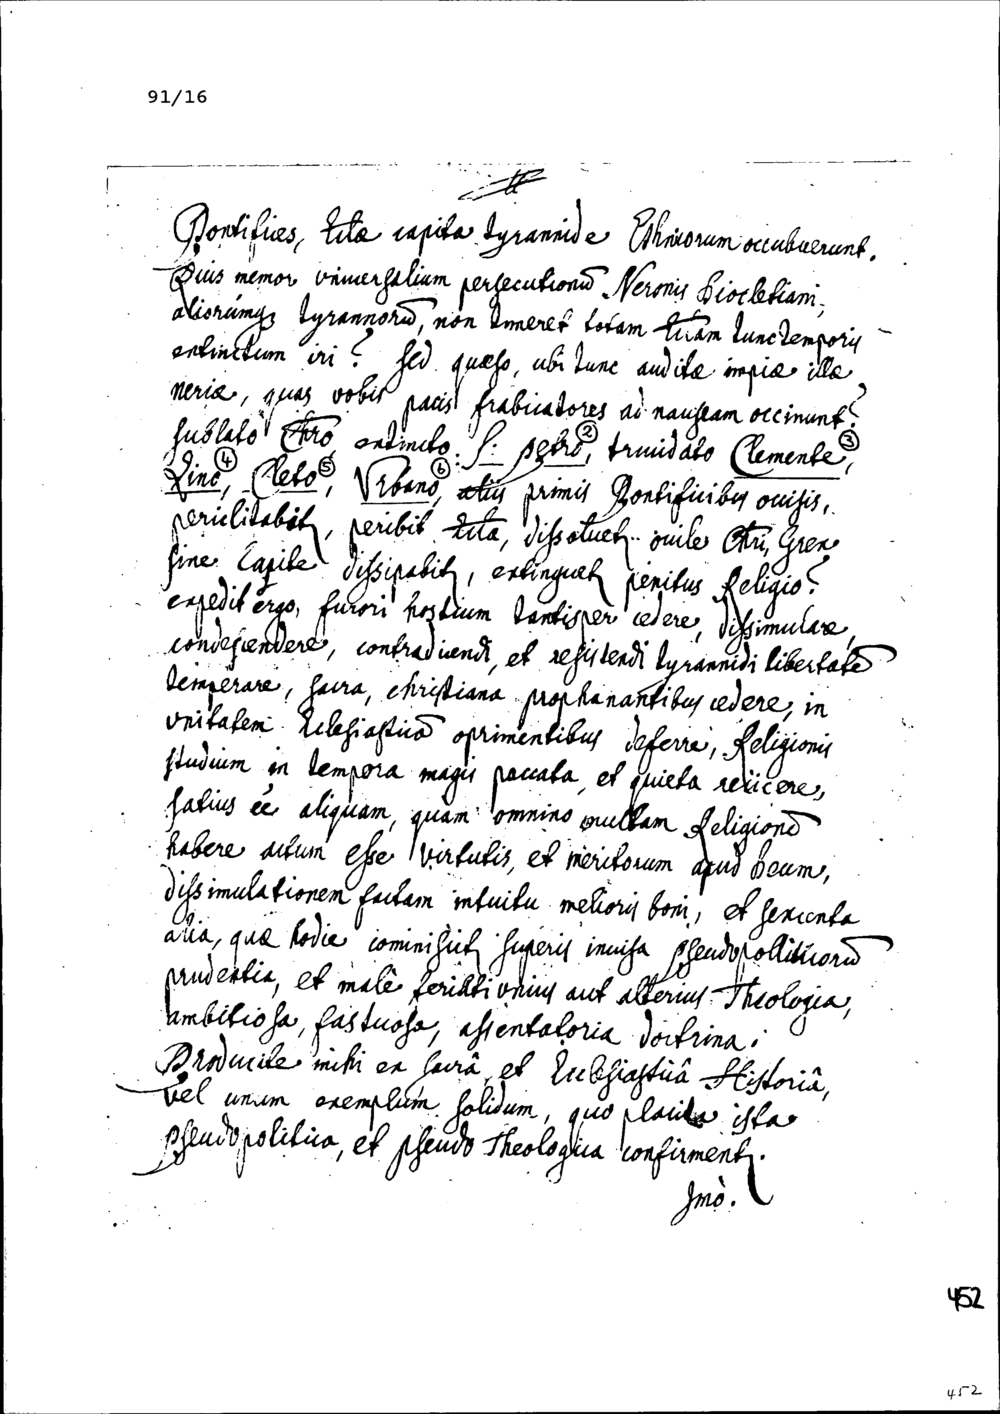 91/16
Pontifices, Ecclæ capita tyrannide Ethnicorum occubuerunt.
Quis memor vniuersalium persecutionũ Neronis Diocletiani,
aliorumq; tyrannorũ, non timeret totam Ecclam tunc temporis
extinctum iri? sed quæso, ubi tunc auditæ impiæ illæ
neniæ, quas vobis pacis frabicatores ad nauseam occinunt?
sublato Chro extincto S: petro② , trucidato Clemente③ ,
Lino④ , Cleto⑤ , Vrbano⑥ , aliis primis Pontificibus occisis,
periclitabit, peribit Eccla, dissoluet ouile Chri, Grex
sine Capite dissipabit, extinguet penitus Religio?
expedit ergo, furori hostium tantisper cedere, dissimulare,
condescendere, contradicendi, et resistendi tyrannidi libertatẽ
temperare, sacra, christiana prophanantibus cedere, in
vnitatem Ecclesiasticã oprimentibus deferre, Religionis
studium in tempora magis paccata, et quieta reiicere,
satius eê aliquam, quam omnino nullam Religionẽ
habere actum esse virtutis, et meritorum apud Deum,
dissimulationem factam intuitu melioris boni, et sexcenta
alia, quæ hodie cominiscit superis inuisa pseudopolliticorũ
prudentia, et malê feriati vnius aut alterius Theologia,
ambitiosa, fastuosa, assentatoria doctrina.
Producite mihi ex sacrâ, et Ecclesiasticâ Historiâ,
vel unum exemplum solidum, quo placita ista
pseudopolitica, et pseudo Theologica confirment.
Imò.
452
452